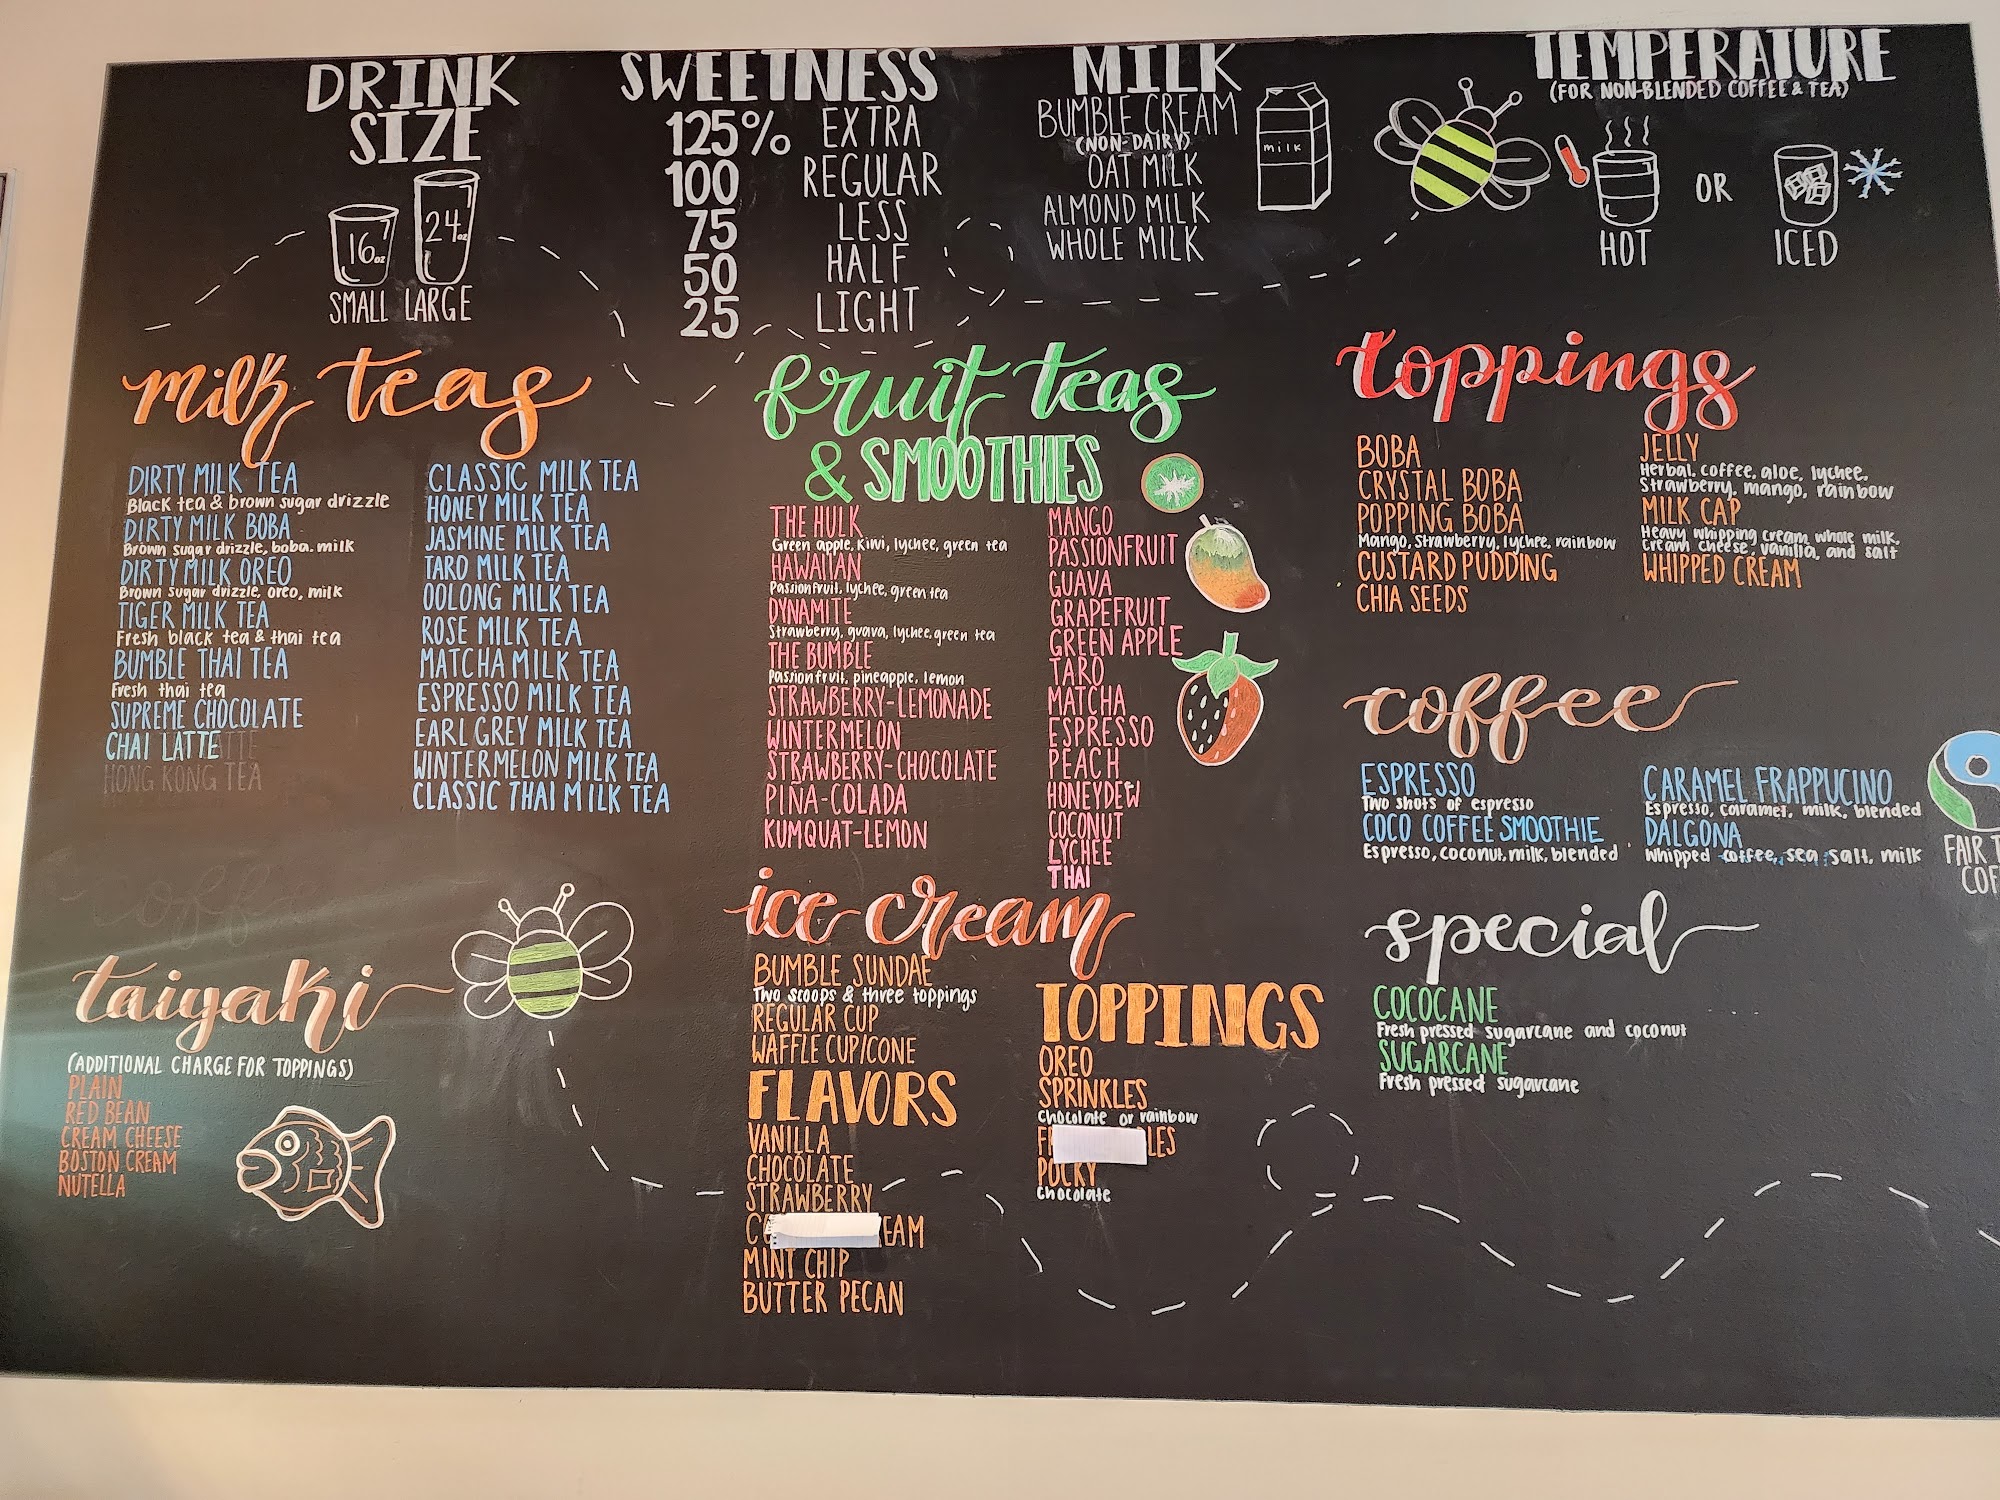 DRINK
SIZE
16oz
24oz
SMALL LARGE
SWEETNESS
125% EXTRA
100 REGULAR
75 LESS
50 HALF
25 LIGHT
MILK
BUMBLE CREAM
(NON-DAIRY)
OAT MILK
ALMOND MILK
WHOLE MILK
milk
TEMPERATURE
(FOR NON-BLENDED COFFEE & TEA)
HOT OR ICED
milk teas
DIRTY MILK TEA
Black tea & brown sugar drizzle
DIRTY MILK BOBA
Brown sugar drizzle, boba. milk
DIRTY MILK OREO
Brown sugar drizzle, oreo, milk
TIGER MILK TEA
Fresh black tea & thai tea
BUMBLE THAI TEA
Fresh thai tea
SUPREME CHOCOLATE
CHAI LATTE
HONG KONG TEA
CLASSIC MILK TEA
HONEY MILK TEA
JASMINE MILK TEA
TARO MILK TEA
OOLONG MILK TEA
ROSE MILK TEA
MATCHA MILK TEA
ESPRESSO MILK TEA
EARL GREY MILK TEA
WINTERMELON MILK TEA
CLASSIC THAI MILK TEA
coffee
taiyaki
(ADDITIONAL CHARGE FOR TOPPINGS)
PLAIN
RED BEAN
CREAM CHEESE
BOSTON CREAM
NUTELLA
fruit teas
& SMOOTHIES
THE HULK
Green apple, kiwi, lychee, green tea
HAWAIIAN
Passionfruit, lychee, green tea
DYNAMITE
Strawberry, guava, lychee, green tea
THE BUMBLE
Passionfruit, pineapple, lemon
STRAWBERRY-LEMONADE
WINTERMELON
STRAWBERRY-CHOCOLATE
PIÑA-COLADA
KUMQUAT-LEMON
MANGO
PASSIONFRUIT
GUAVA
GRAPEFRUIT
GREEN APPLE
TARO
MATCHA
ESPRESSO
PEACH
HONEYDEW
COCONUT
LYCHEE
THAI
ice cream
BUMBLE SUNDAE
Two scoops & three toppings
REGULAR CUP
WAFFLE CUP/CONE
FLAVORS
VANILLA
CHOCOLATE
STRAWBERRY
MINT CHIP
BUTTER PECAN
TOPPINGS
OREO
SPRINKLES
Chocolate or rainbow
POCKY
Chocolate
toppings
BOBA
CRYSTAL BOBA
POPPING BOBA
Mango, Strawberry, lychee, rainbow
CUSTARD PUDDING
CHIA SEEDS
JELLY
Herbal, coffee, aloe, lychee,
Strawberry, mango, rainbow
MILK CAP
Heavy whipping cream, whole milk,
cream cheese, vanilla, and salt
WHIPPED CREAM
coffee
ESPRESSO
Two shots of espresso
COCO COFFEE SMOOTHIE
Espresso, coconut, milk, blended
CARAMEL FRAPPUCINO
Espresso, caramel, milk, blended
DALGONA
Whipped coffee, sea salt, milk
FAIR
special
COCOCANE
Fresh pressed sugarcane and coconut
SUGARCANE
Fresh pressed sugarcane